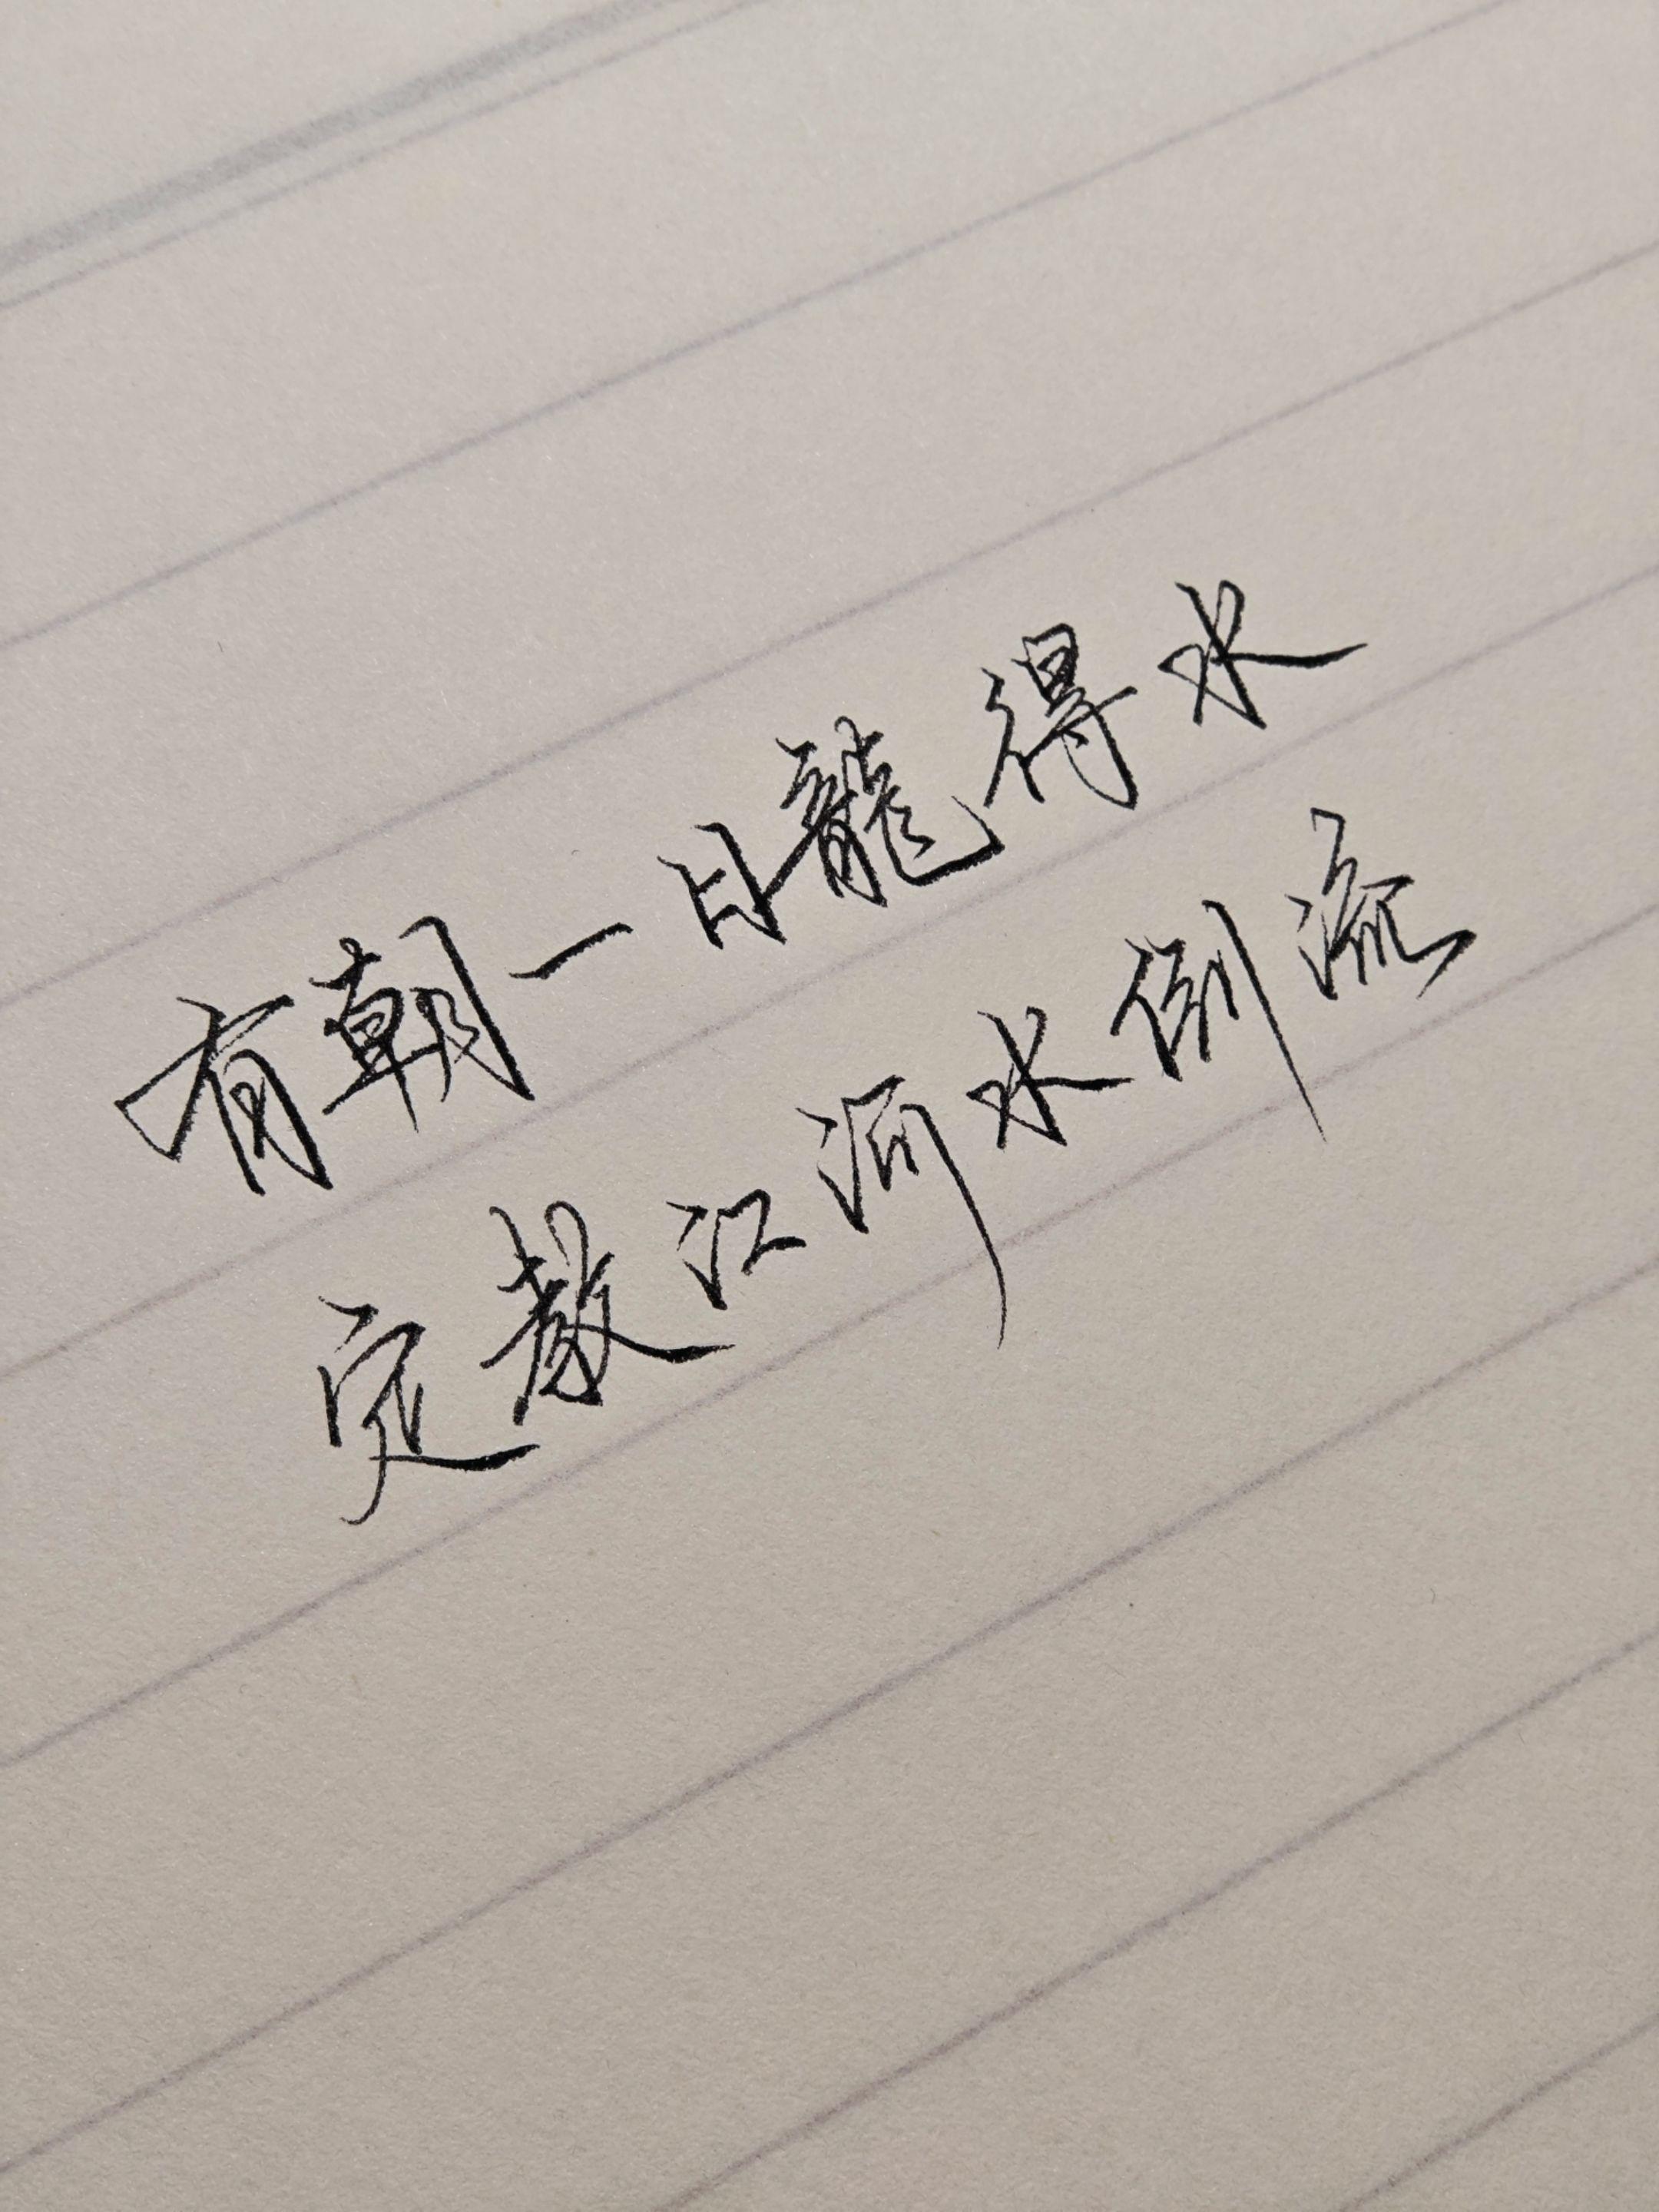 有朝一日龍得水
定教江河水倒流